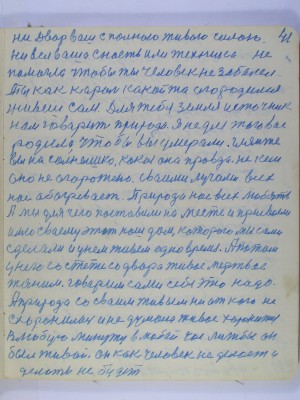 ни Двор ваш с полного живого силою. 41
Ни вся ваша снасть или техника не
помогла чтобы ты человек не заболел.
Ты как карол какой та огородился
живеш сам для тебя земля источник
нам говарит природа. Я не для того вас
родила чтобы вы умерали. Гляньте
вы на солнышко, кокоя она правда. не кем
оно не огорожено. Своими лучами всех
нас абогревает. Природа нас всех любить
А ты для чего поставили на месте и привыкли
к своему этом ном дом, которого мы сами
сделали и у нем живем одно время. А потом
у него со стети со двора живое мертвое
таним. говорим сами себе это надо.
А природа со своим живым ни от кого не
огородилась и не думала живое хоронить
В любую минуту в любой час лижбы он
был живой. он как человек не делает и
делать не будет